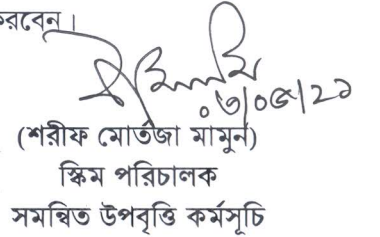 করবেন।
০৬/০৫/২১
(শরীফ মোর্তজা মামুন)
স্কিম পরিচালক
সমন্বিত উপবৃত্তি কর্মসূচি